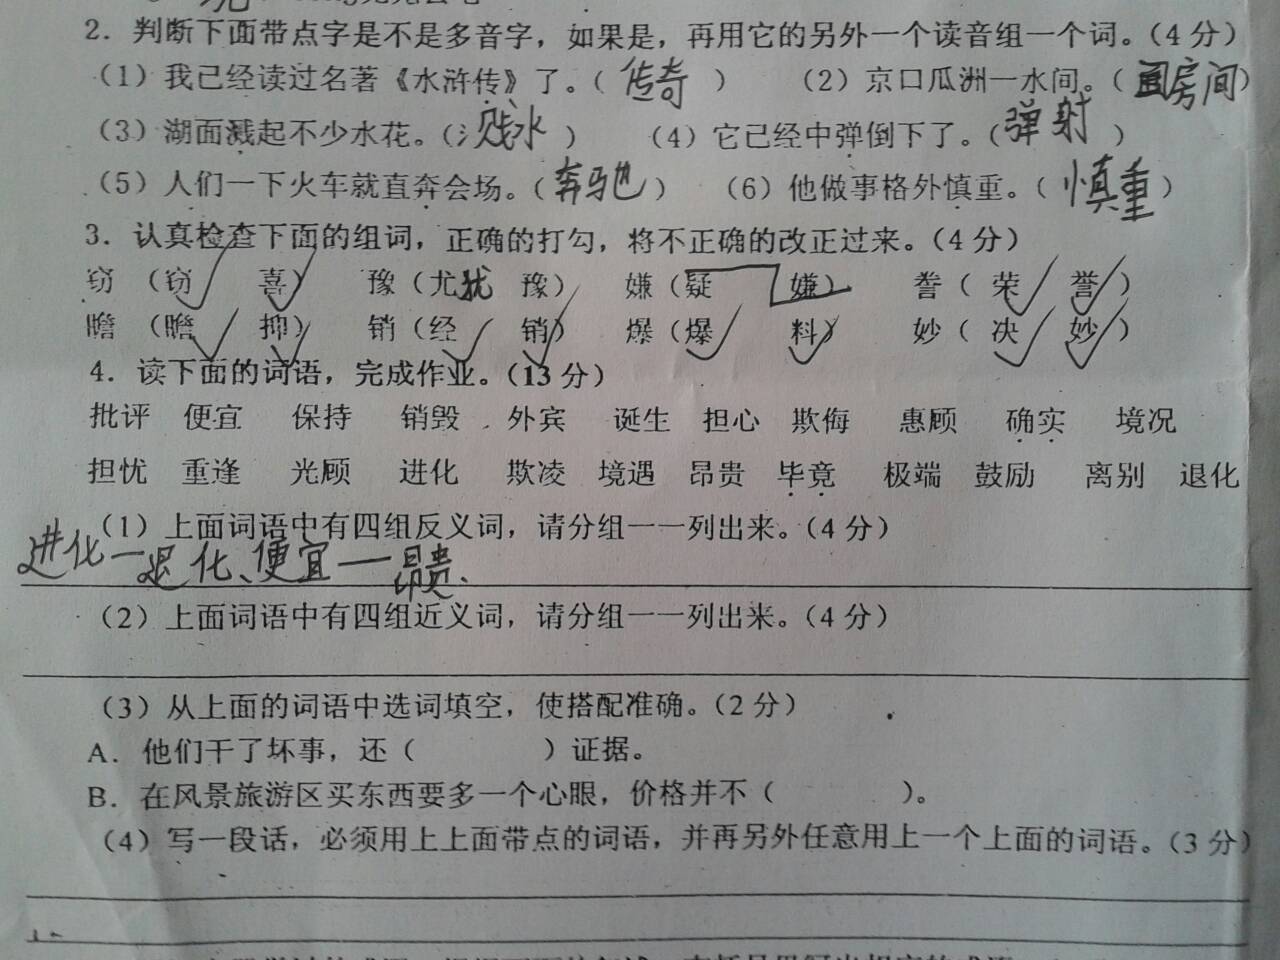 2．判断下面带点字是不是多音字，如果是，再用它的另外一个读音组一个词。（4 分）
（1）我已经读过名著《水浒传》了。（ 传奇 ） （2）京口瓜洲一水间。（ 房间）
（3）湖面溅起不少水花。（溅水 ） （4）它已经中弹倒下了。（弹射 ）
（5）人们一下火车就直奔会场。（奔驰 ） （6）他做事格外慎重。（ 慎重 ）
3．认真检查下面的组词，正确的打勾，将不正确的改正过来。（4 分）
窃 （窃 喜） 豫（尤犹 豫） 嫌（疑 嫌） 誊（ 荣 誉 ）
瞻 （瞻 抑） 销（经 销） 爆（爆 料） 妙（ 决 妙 ）
4．读下面的词语，完成作业。（13 分）
批评 便宜 保持 销毁 外宾 诞生 担心 欺侮 惠顾 确实 境况
担忧 重逢 光顾 进化 欺凌 境遇 昂贵 毕竟 极端 鼓励 离别 退化
（1）上面词语中有四组反义词，请分组一一列出来。（4 分）
进化—退化、便宜—昂贵、
（2）上面词语中有四组近义词，请分组一一列出来。（4 分）
（3）从上面的词语中选词填空，使搭配准确。（2 分）
A．他们干了坏事，还（ ）证据。
B．在风景旅游区买东西要多一个心眼，价格并不（ ）。
（4）写一段话，必须用上上面带点的词语，并再另外任意用上一个上面的词语。（3 分）